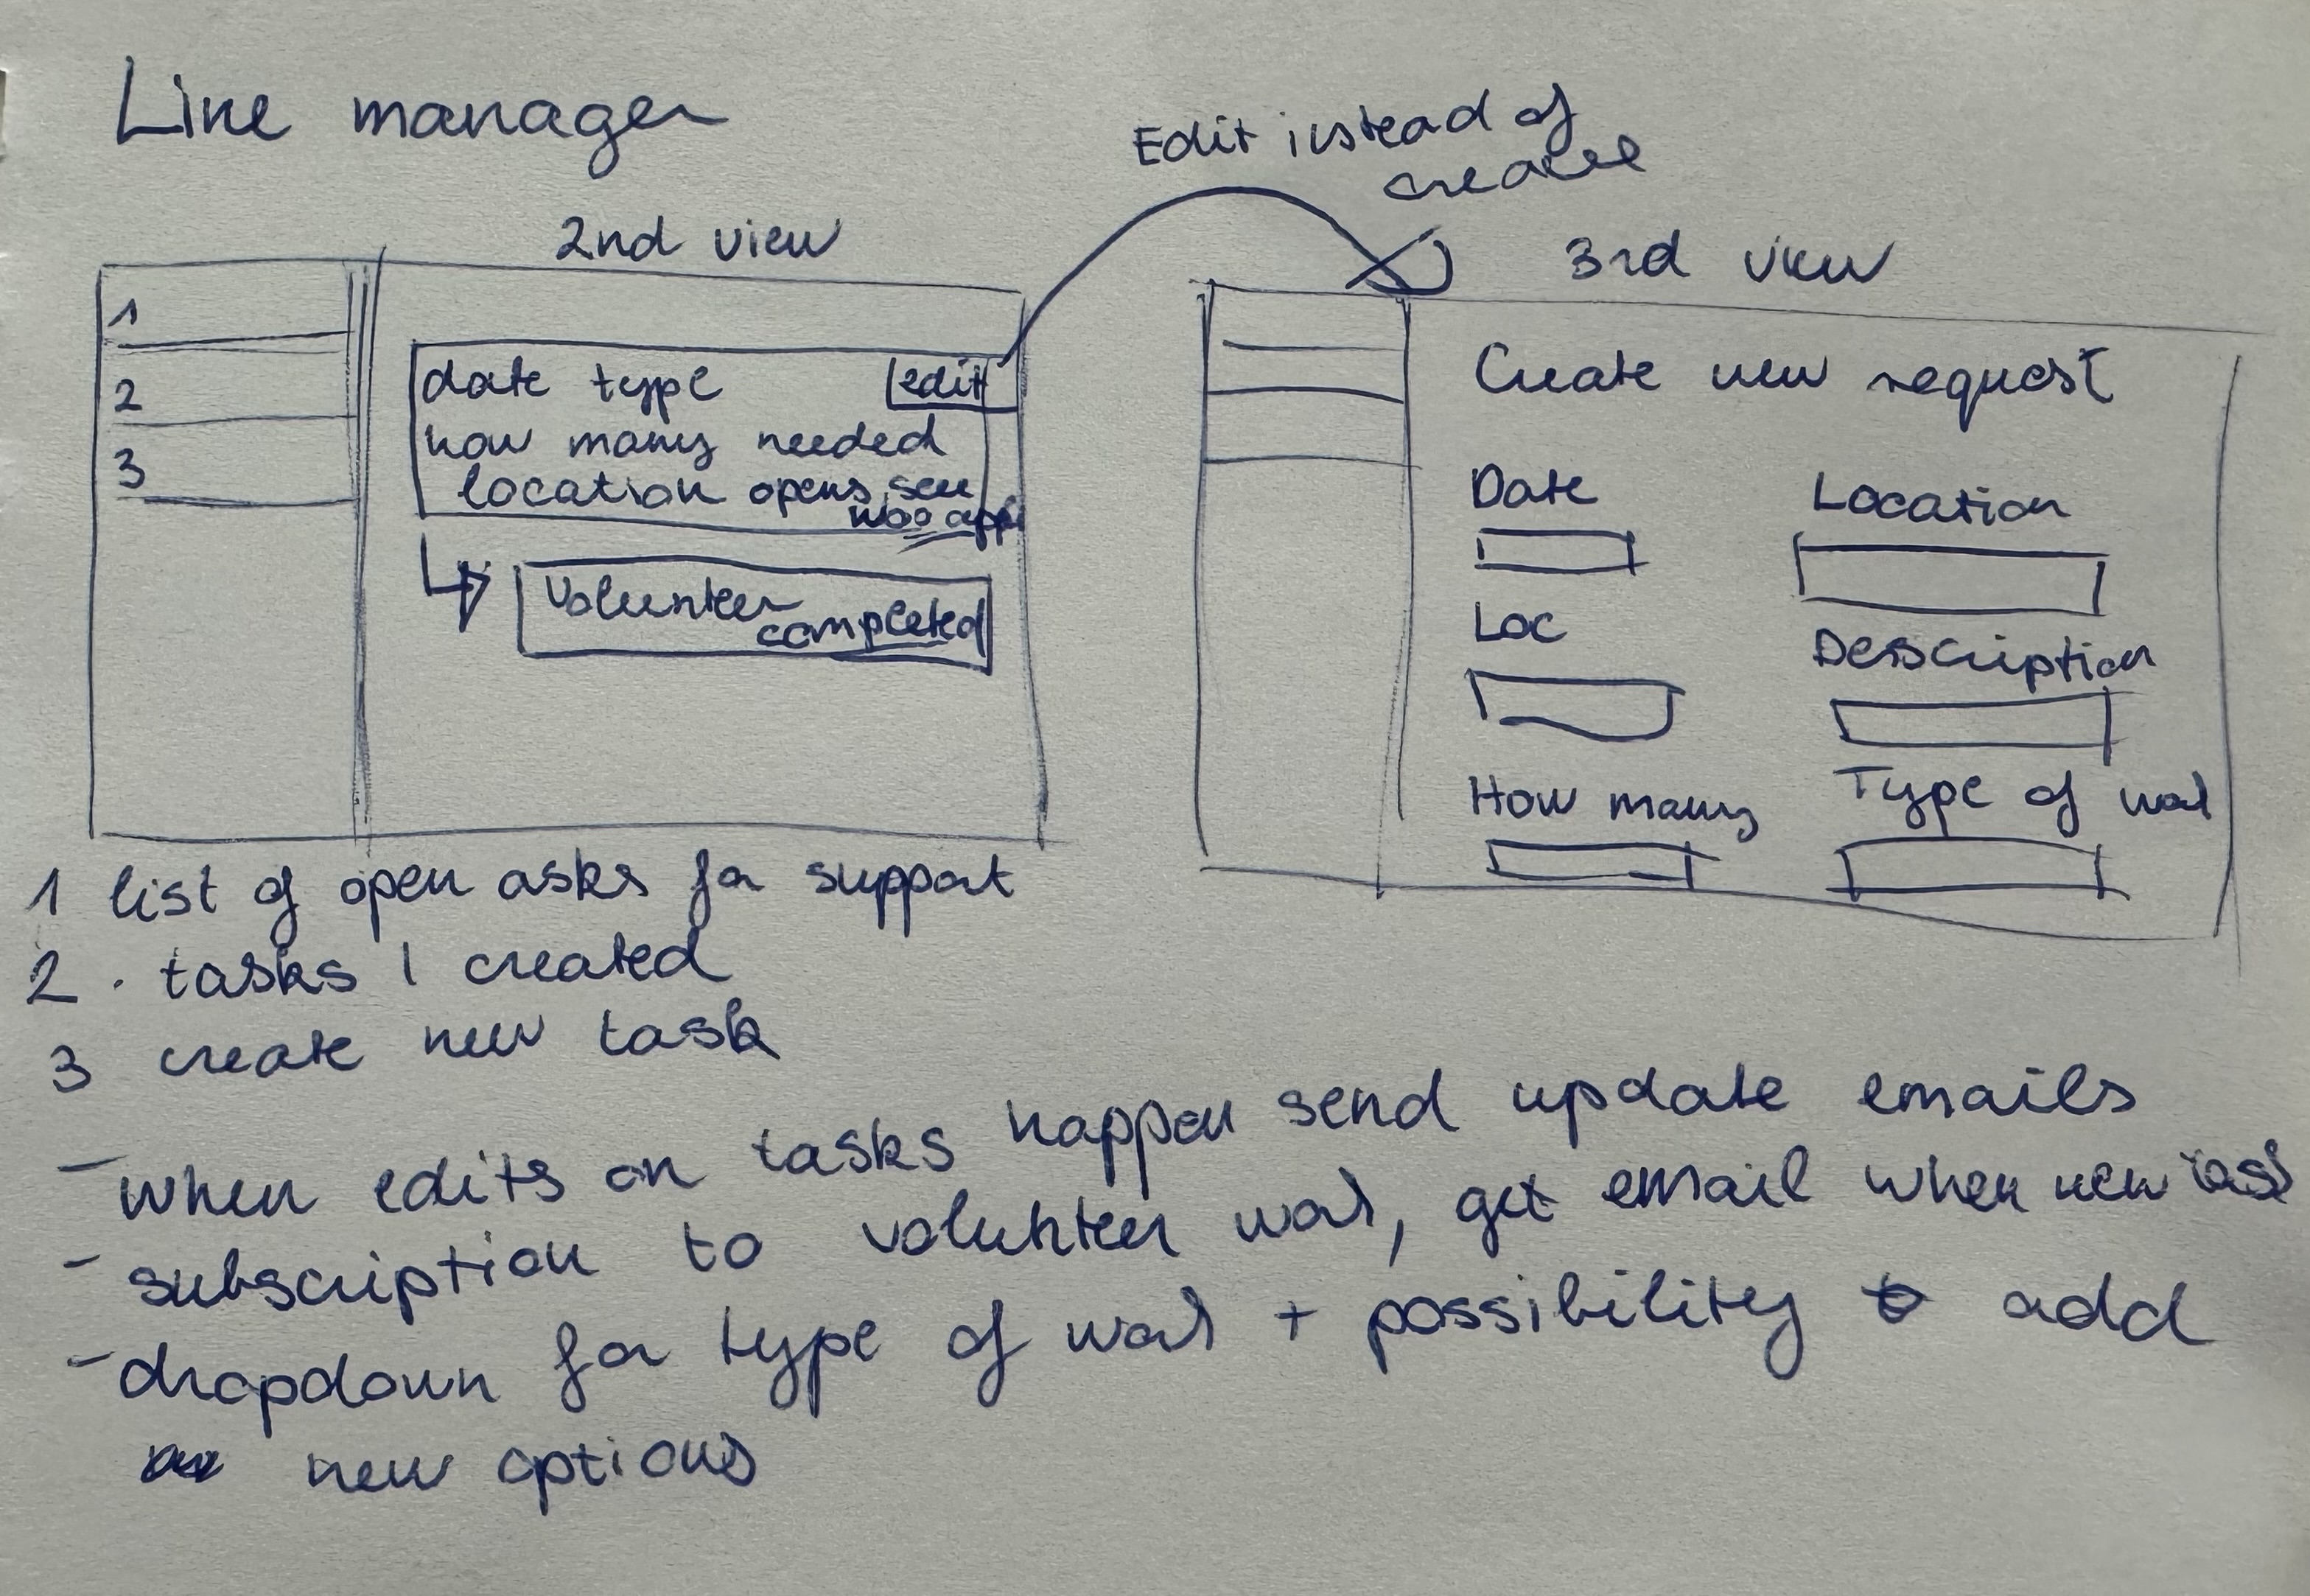 Line manager
Edit instead of
create
2nd view
3rd view
1
2
3
date type
edit
how many needed
location opens, see
who app
volunteer
completed
Create new request
Date
Location
Loc
Description
How many
Type of work
1 list of open asks for support
2. tasks I created
3 create new task
- when edits on tasks happen send update emails
- subscription to volunteer work, get email when new task
- dropdown for type of work + possibility to add
new options